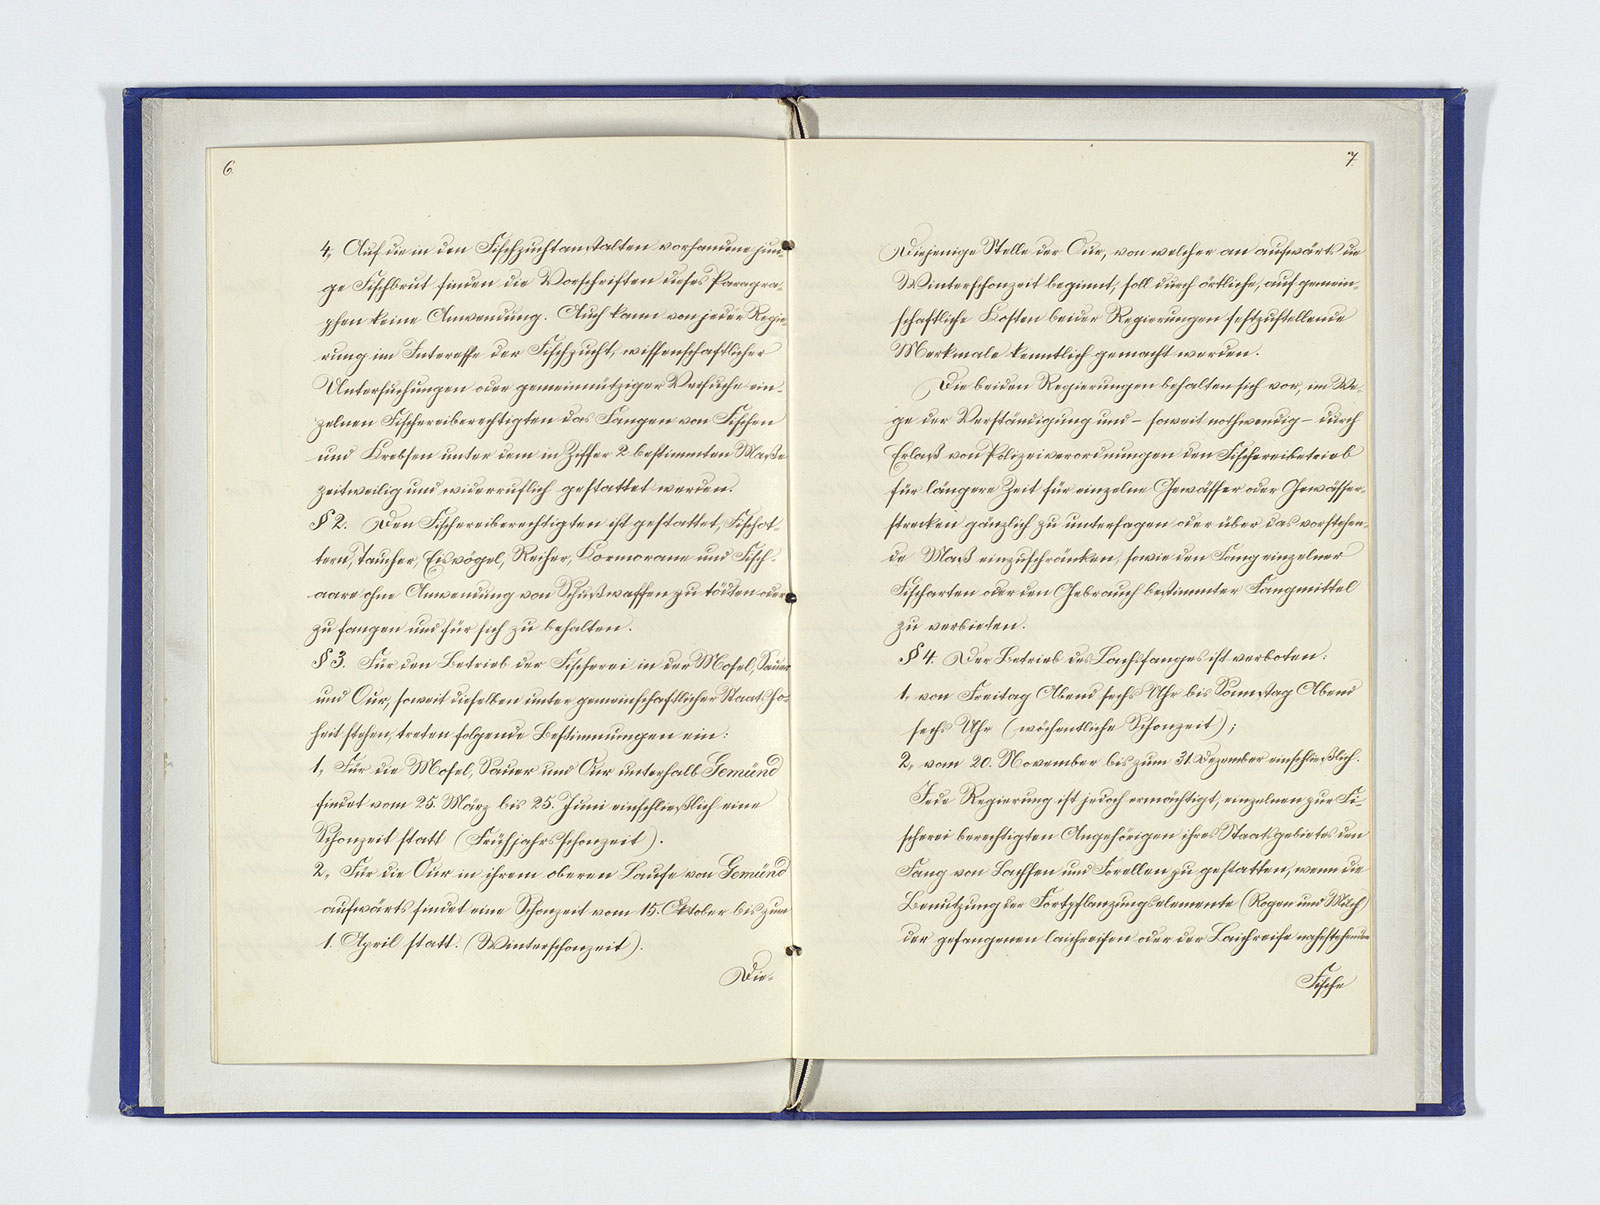 6
4, Auf die in den Fischzuchtanstalten vorhandene jun-
ge Fischbrut finden die Vorschriften dieses Paragra-
phen keine Anwendung. Auch kann von jeder Regie-
rung im Interesse der Fischzucht, wissenschaftlicher
Untersuchungen oder gemeinnütziger Versuche ein-
zelnen Fischereiberechtigten das Fangen von Fischen
und Krebsen unter dem in Ziffer 2 bestimmten Maße
zeitweilig und widerruflich gestattet werden.
§ 2. Den Fischereiberechtigten ist gestattet, Fischot-
tern, Taucher, Eisvögel, Reiher, Kormorane und Fisch-
aare ohne Anwendung von Schußwaffen zu tödten oder
zu fangen und für sich zu behalten.
§ 3. Für den Betrieb der Fischerei in der Mosel, Sauer
und Our, soweit dieselben unter gemeinschaftlicher Staatsho-
heit stehen, treten folgende Bestimmungen ein:
1, Für die Mosel, Sauer und Our unterhalb Gemünd
findet vom 25. März bis 25. Juni einschließlich eine
Schonzeit statt (Frühjahrsschonzeit).
2, Für die Our in ihrem oberen Laufe von Gemünd
aufwärts findet eine Schonzeit vom 15. Oktober bis zum
1. April statt. (Winterschonzeit).
Die-
7
Diejenige Stelle der Our, von welcher an aufwärts die
Winterschonzeit beginnt, soll durch örtliche, auf gemein-
schaftliche Kosten beider Regierungen festzustellende
Merkmale kenntlich gemacht werden.
Die beiden Regierungen behalten sich vor, im We-
ge der Verständigung und – soweit nothwendig – durch
Erlaß von Polizeiverordnungen den Fischereibetrieb
für längere Zeit für einzelne Gewässer oder Gewässer-
strecken gänzlich zu untersagen oder über das vorstehen-
de Maß einzuschränken, sowie den Fang einzelner
Fischarten oder den Gebrauch bestimmter Fangmittel
zu verbieten.
§ 4. Der Betrieb des Lachsfanges ist verboten:
1, von Freitag Abend sechs Uhr bis Sonntag Abend
sechs Uhr (wöchentliche Schonzeit);
2, vom 20. November bis zum 31. Dezember einschließlich.
Jede Regierung ist jedoch ermächtigt, einzelnen zur Fi-
scherei berechtigten Angehörigen ihres Staatsgebietes den
Fang von Lachsen und Forellen zu gestatten, wenn die
Benutzung der Fortpflanzungselemente (Rogen und Milch)
der gefangenen laichreifen oder der Laichreife nahestehenden
Fische